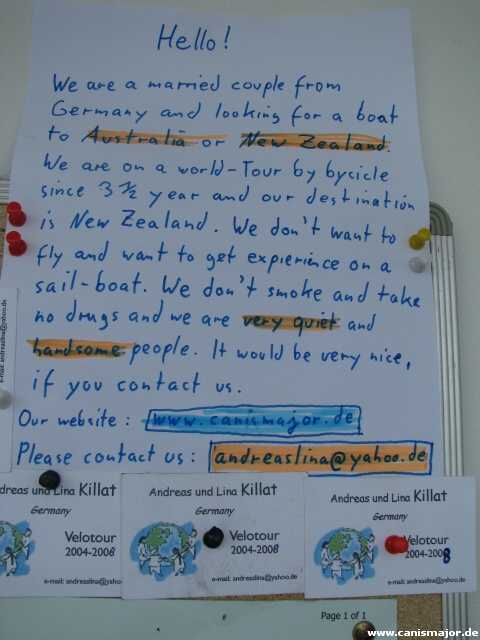 Hello!
We are a married couple from
Germany and looking for a boat
to Australia or New Zealand.
We are on a world-Tour by bycicle
since 3 ½ year and our destination
is New Zealand. We don't want to
fly and want to get expierience on a
sail-boat. We don't smoke and take
no drugs and we are very quiet and
handsome people. It would be very nice,
if you contact us.
Our website: www.canismajor.de
Please contact us: andreaslina@yahoo.de
e-mail: andreaslina@yahoo.de
dreas und Lina Killat
Germany
Velotour
2004-2008
e-mail: andreaslina@yahoo.de
Andreas und Lina Killat
Germany
Velotour
2004-2008
e-mail: andreaslina@yahoo.de
Andreas und Lina Killat
Germany
Velotour
2004-2008
e-mail: andreaslina@yahoo.de
Page 1 of 1
www.canismajor.de